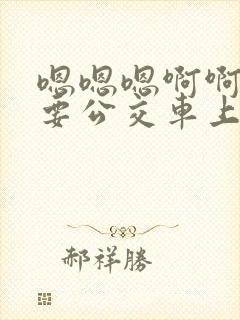 嗯嗯嗯啊啊
要公交車上
郝祥勝